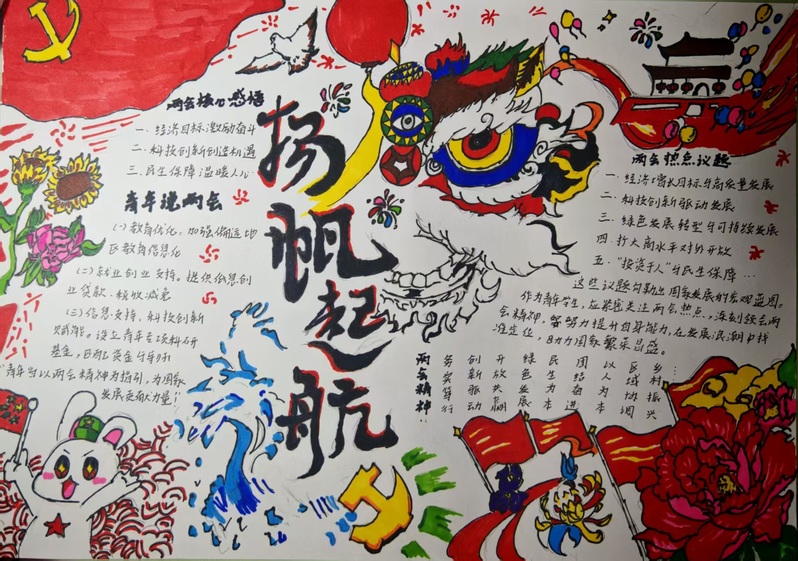 扬帆起航
两会核心感悟
一、经济目标激励奋斗
二、科技创新创造机遇
三、民生保障温暖人心
青年说两会
(一)教育优化，加强偏远地
区教育信息化
(二)就业创业支持。提供低息创
业贷款、税收减免
(三)信息支持，科技创新
赋能。设立青年专项科研
基金，
"青年可以两会精神为指引，为国家
发展贡献力量!!
两会热点议题
一、经济增长目标与高质量发展
二、科技创新驱动发展
三、绿色发展转型与可持续发展
四、扩大高水平对外开放
五、"投资于人"与民生保障…
这些议题勾勒出国家发展的宏观蓝图。
作为青年学生，应紧密关注两会热点，深刻领会两
会精神，努力提升自身能力，在发展浪潮中找
准定位，助力国家繁荣昌盛。
两会精神:
务实笃行
创新驱动
开放共赢
绿色发展
民生为本
团结奋进
以人为本
区域协调
乡村振兴